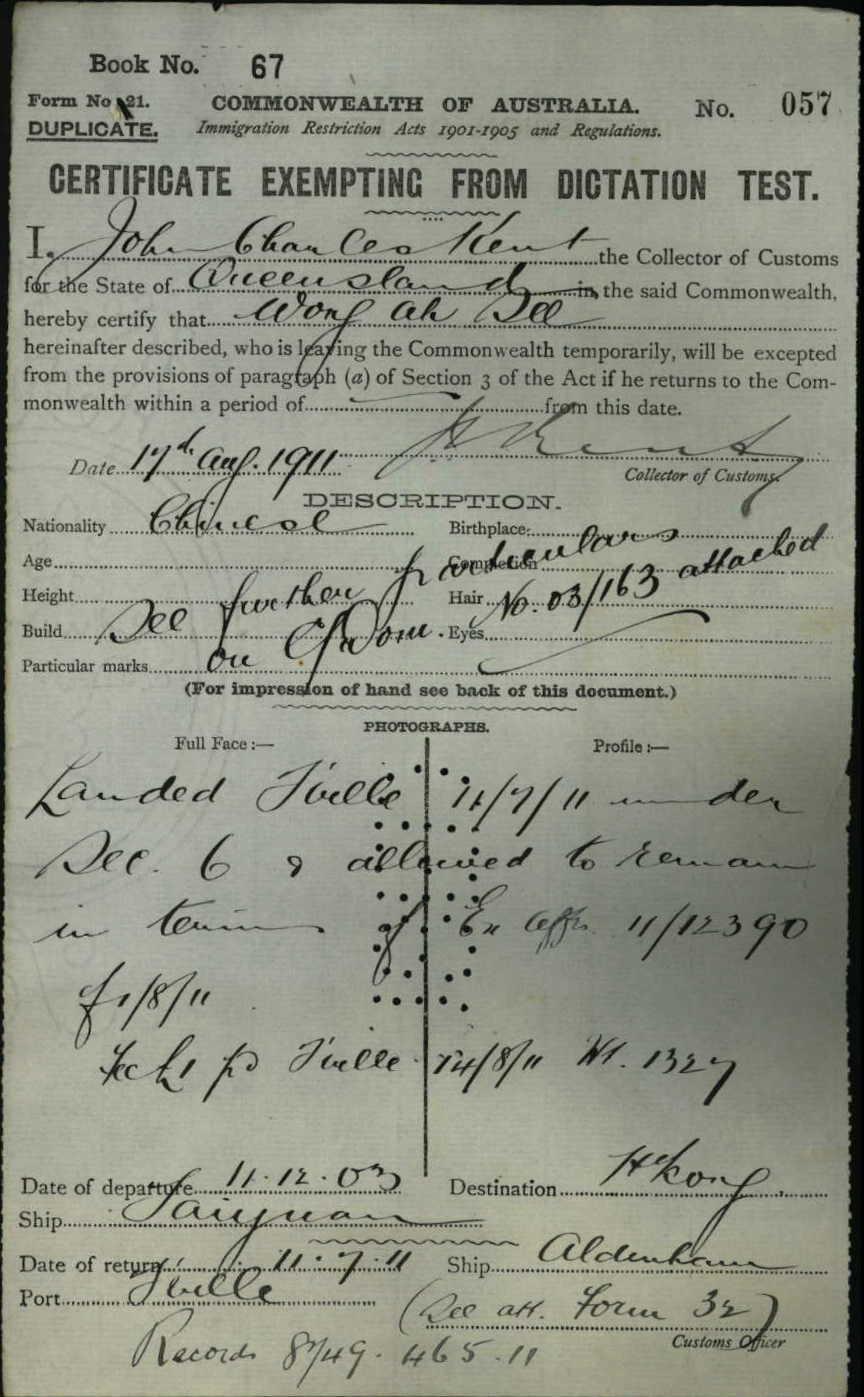 Book No. 67
Form No 21. COMMONWEALTH OF AUSTRALIA. No. 057
DUPLICATE. Immigration Restriction Acts 1901-1905 and Regulations.
CERTIFICATE EXEMPTING FROM DICTATION TEST.
I, John Charles Kent the Collector of Customs
for the State of Queensland in the said Commonwealth,
hereby certify that Wong Ah See
hereinafter described, who is leaving the Commonwealth temporarily, will be excepted
from the provisions of paragraph (a) of Section 3 of the Act if he returns to the Com-
monwealth within a period of from this date.
Date 17th Aug. 1911 Kent
Collector of Customs.
DESCRIPTION.
Nationality Chinese Birthplace
Age Complexion
Height Hair
Build Eyes
Particular marks
See further particulars
on C/Dom. No. 03/163 attached
(For impression of hand see back of this document.)
PHOTOGRAPHS.
Full Face :— Profile :—
Landed T'ville 11/7/11 under
Sec. 6 & allowed to remain
in terms of Ex Affs. 11/12390
of 1/8/11
Fee £1 pd T'ville 14/8/11 1327
Date of departure 11.12.03 Destination H'kong
Ship Taiyuan
Date of return 11.7.11 Ship Aldenham
Port T'ville (See att. Form 32)
Customs Officer
Records 465.11